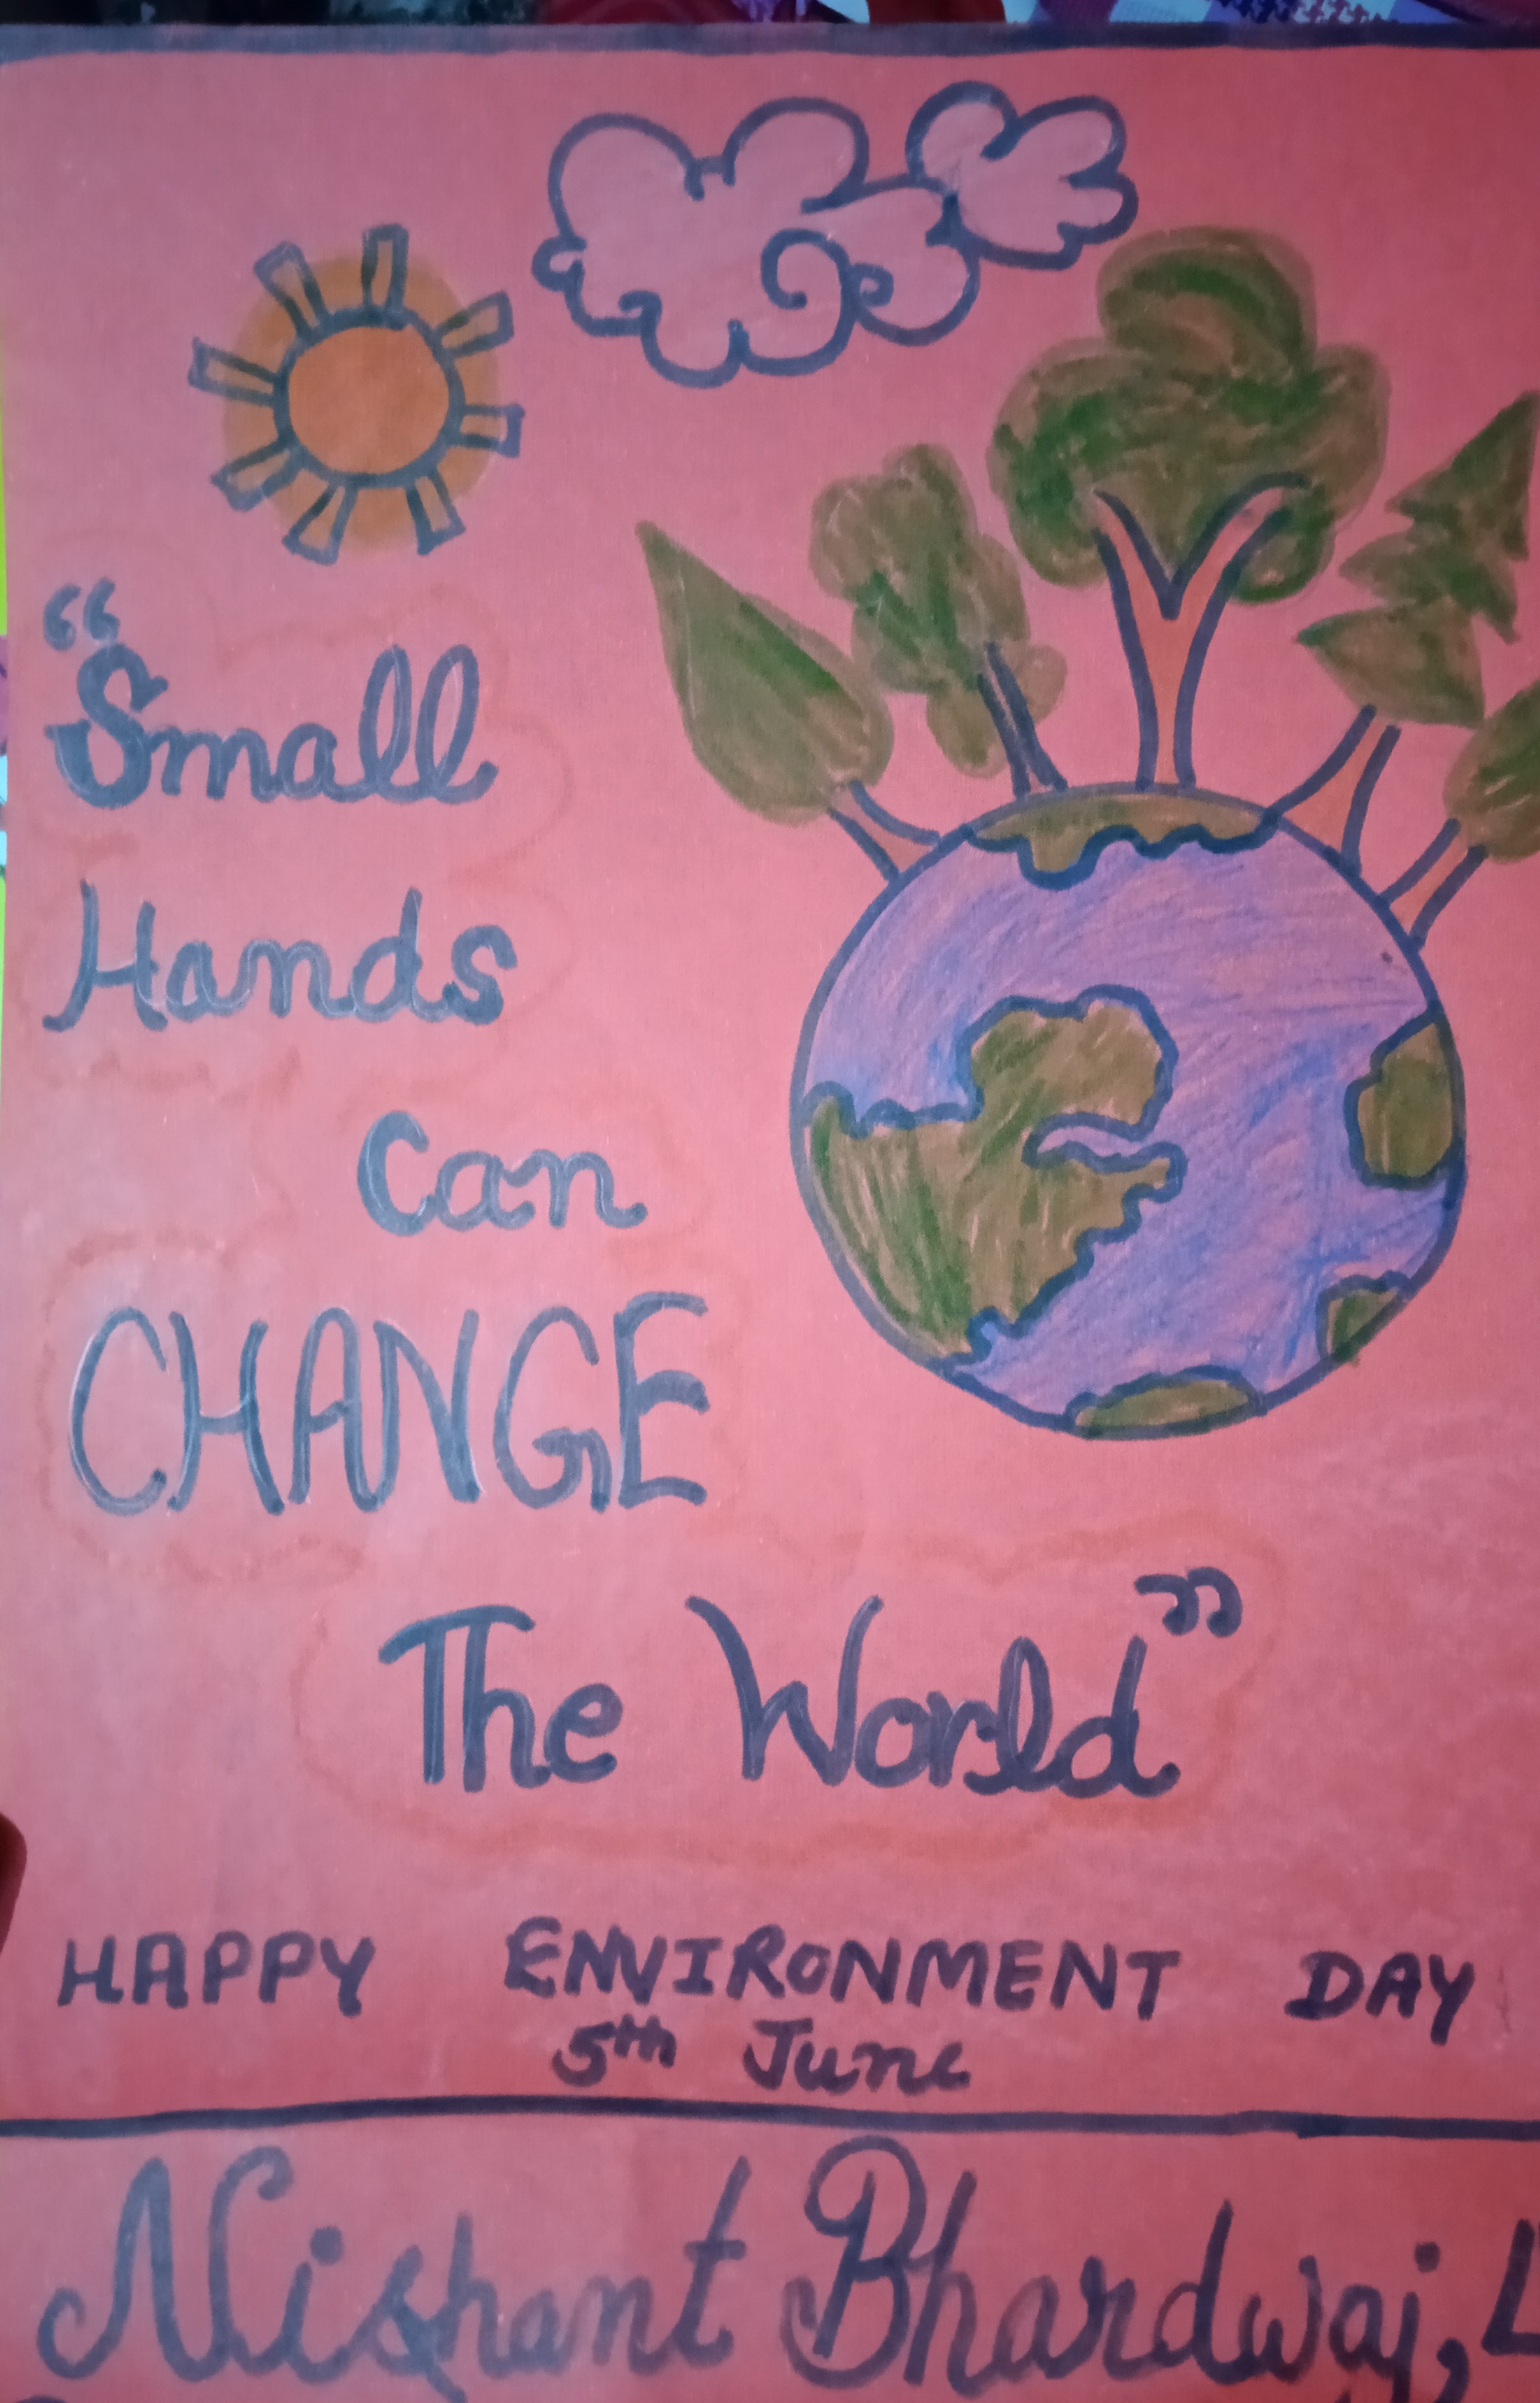 “Small
Hands
Can
CHANGE
The World”
HAPPY ENVIRONMENT DAY
5th June
Nishant Bhardwaj,